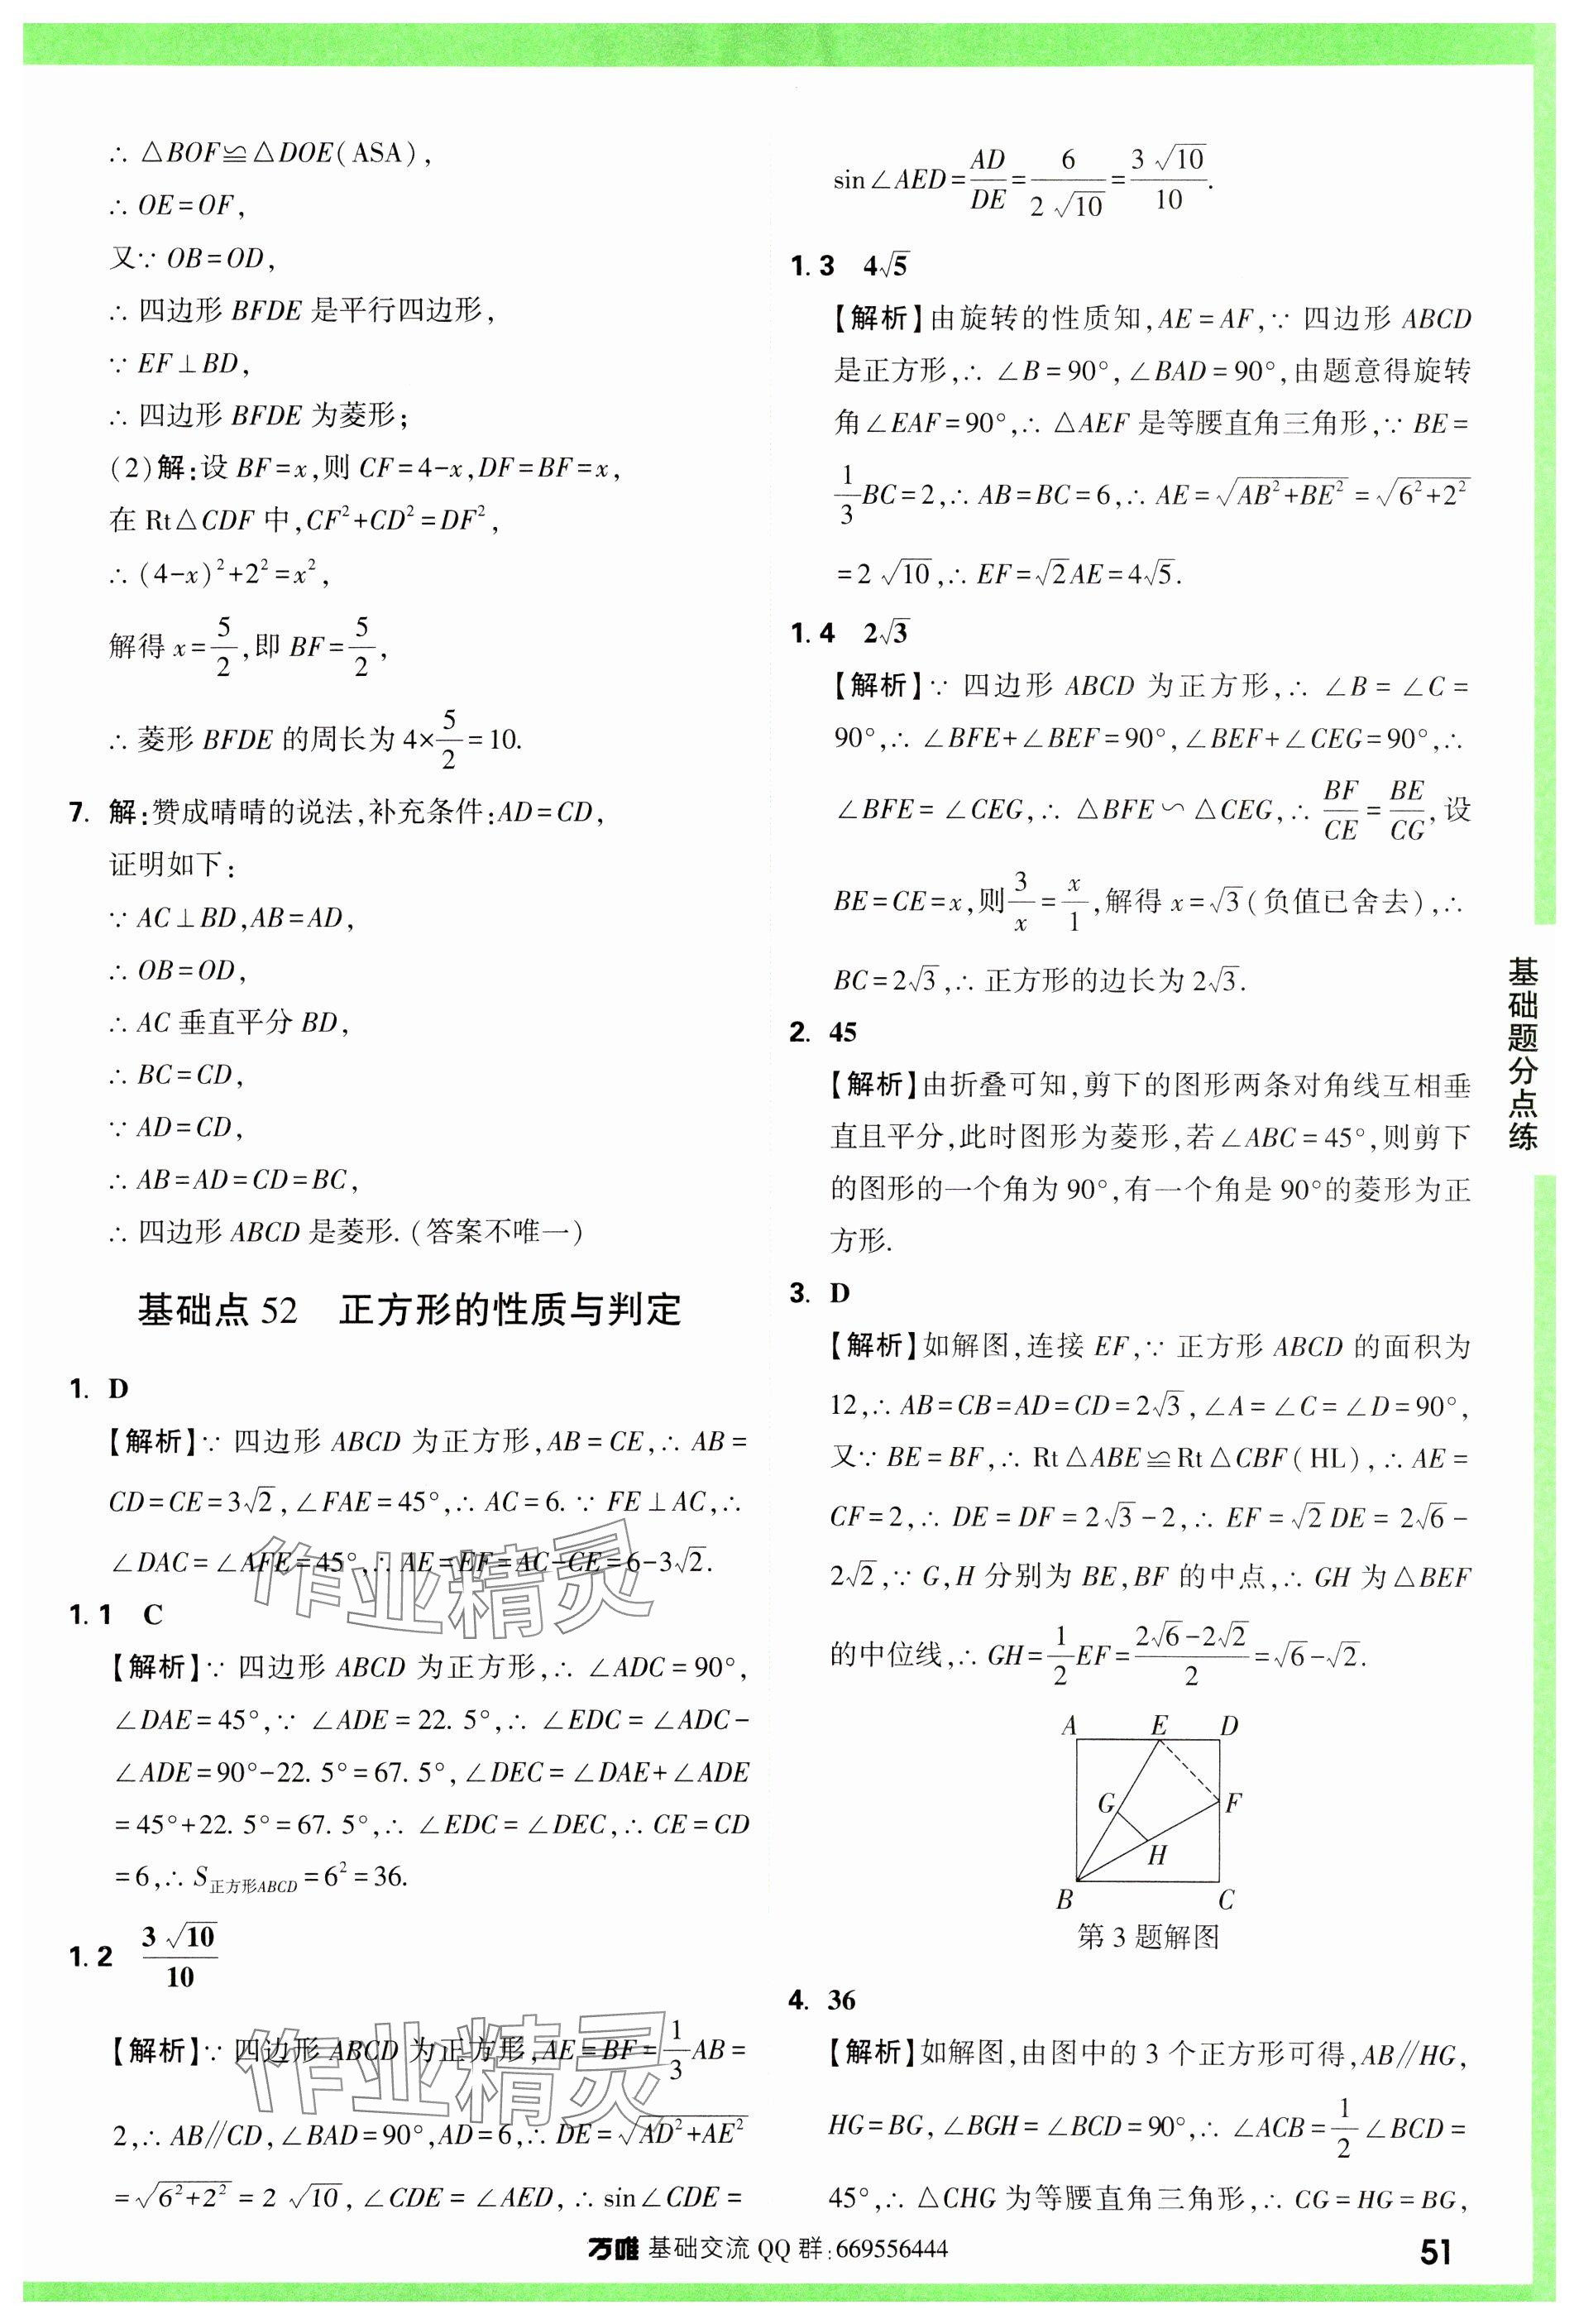 ∴ △BOF≌△DOE(ASA),
∴ OE=OF,
又∵ OB=OD,
∴ 四边形 BFDE 是平行四边形,
∵ EF⊥BD,
∴ 四边形 BFDE 为菱形;
(2)解:设 BF=x,则 CF=4-x,DF=BF=x,
在 Rt△CDF 中,CF²+CD²=DF²,
∴ (4-x)²+2²=x²,
解得 x=5/2,即 BF=5/2,
∴ 菱形 BFDE 的周长为 4×5/2=10.
7. 解:赞成晴晴的说法,补充条件:AD=CD,
证明如下:
∵ AC⊥BD,AB=AD,
∴ OB=OD,
∴ AC 垂直平分 BD,
∴ BC=CD,
∵ AD=CD,
∴ AB=AD=CD=BC,
∴ 四边形 ABCD 是菱形.(答案不唯一)
基础点 52 正方形的性质与判定
1. D
【解析】∵ 四边形 ABCD 为正方形,AB=CE,∴ AB=
CD=CE=3√2,∠FAE=45°,∴ AC=6. ∵ FE⊥AC,∴
∠DAC=∠AFE=45°,∴ AE=EF=AC-CE=6-3√2.
1.1 C
【解析】∵ 四边形 ABCD 为正方形,∴ ∠ADC=90°,
∠DAE=45°,∵ ∠ADE=22.5°,∴ ∠EDC=∠ADC-
∠ADE=90°-22.5°=67.5°,∠DEC=∠DAE+∠ADE
=45°+22.5°=67.5°,∴ ∠EDC=∠DEC,∴ CE=CD
=6,∴ S正方形ABCD=6²=36.
1.2 3√10/10
【解析】∵ 四边形 ABCD 为正方形,AE=BF=1/3AB=
2,∴ AB∥CD,∠BAD=90°,AD=6,∴ DE=√(AD²+AE²)
=√(6²+2²)=2√10,∠CDE=∠AED,∴ sin∠CDE=
sin∠AED=AD/DE=6/(2√10)=3√10/10.
1.3 4√5
【解析】由旋转的性质知,AE=AF,∵ 四边形 ABCD
是正方形,∴ ∠B=90°,∠BAD=90°,由题意得旋转
角∠EAF=90°,∴ △AEF 是等腰直角三角形,∵ BE=
1/3BC=2,∴ AB=BC=6,∴ AE=√(AB²+BE²)=√(6²+2²)
=2√10,∴ EF=√2AE=4√5.
1.4 2√3
【解析】∵ 四边形 ABCD 为正方形,∴ ∠B=∠C=
90°,∴ ∠BFE+∠BEF=90°,∠BEF+∠CEG=90°,∴
∠BFE=∠CEG,∴ △BFE∽△CEG,∴ BF/CE=BE/CG,设
BE=CE=x,则3/x=x/1,解得 x=√3(负值已舍去),∴
BC=2√3,∴ 正方形的边长为 2√3.
2. 45
【解析】由折叠可知,剪下的图形两条对角线互相垂
直且平分,此时图形为菱形,若∠ABC=45°,则剪下
的图形的一个角为 90°,有一个角是 90°的菱形为正
方形.
3. D
【解析】如解图,连接 EF,∵ 正方形 ABCD 的面积为
12,∴ AB=CB=AD=CD=2√3,∠A=∠C=∠D=90°,
又∵ BE=BF,∴ Rt△ABE≌Rt△CBF(HL),∴ AE=
CF=2,∴ DE=DF=2√3-2,∴ EF=√2DE=2√6-
2√2,∵ G,H 分别为 BE,BF 的中点,∴ GH 为△BEF
的中位线,∴ GH=1/2EF=(2√6-2√2)/2=√6-√2.
A E D
G F
H
B C
第 3 题解图
4. 36
【解析】如解图,由图中的 3 个正方形可得,AB∥HG,
HG=BG,∠BGH=∠BCD=90°,∴ ∠ACB=1/2∠BCD=
45°,∴ △CHG 为等腰直角三角形,∴ CG=HG=BG,
基础题分点练
作业精灵
作业精灵
万唯 基础交流 QQ 群:669556444
51